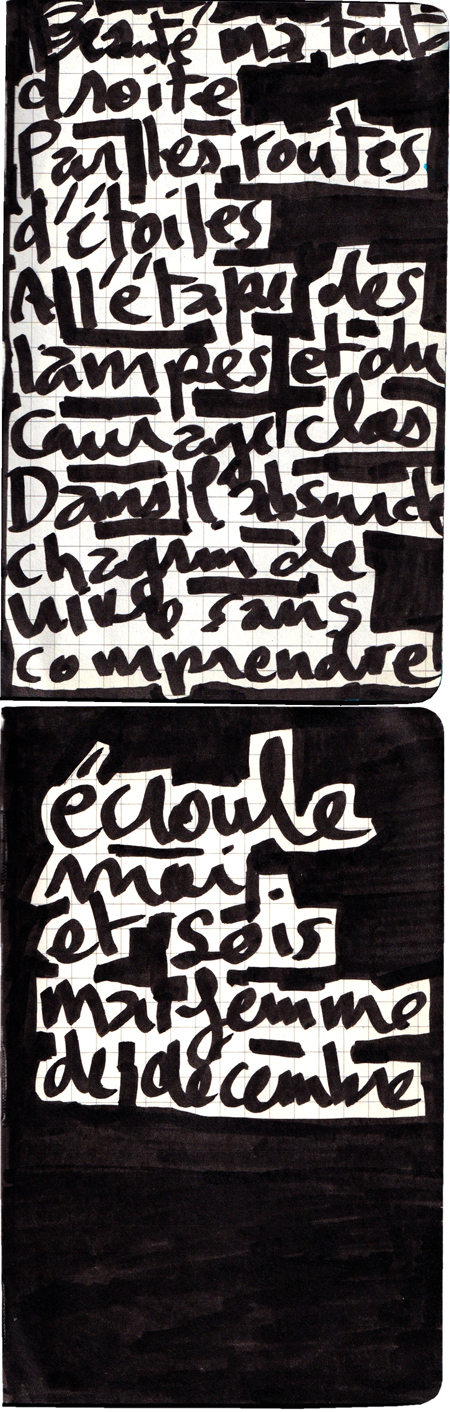 Beauté ma toute
droite
Par les routes
d'étoiles
A l'étape des
lampes et du
courage clos
Dans l'absurde
chagrin de
vivre sans
comprendre
écroule
moi
et sois
ma femme
de décembre